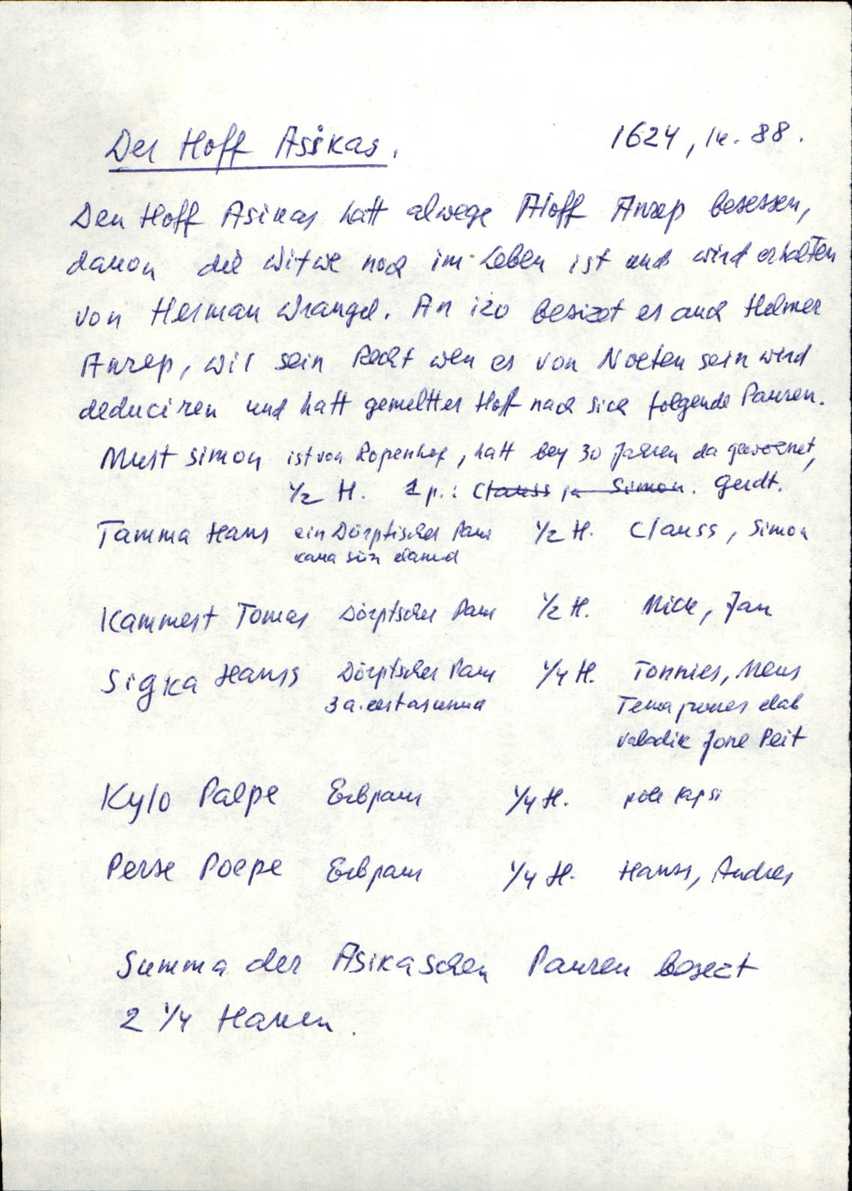 Der Hoff Asikas. 1624, lk. 88.
Den Hoff Asikas hatt alwege Aloff Anrep besessen,
dauon die Witwe noch im Leben ist und wird erhalten
von Herman Wrangel. An izo besizet es auch Helmer
Anrep, wil sein Recht wen es von Noeten sein wird
deduciren und hatt gemeltter Hoff nach sich folgende Pauren.
Must Simon ist von Ropenhof, hatt bey 30 Jahren da gewoenet,
1/2 H. 1 p.: Clauss ja Simon. Gerdt.
Tamma Hans ein Dörptischer Paur 1/2 H. Clauss, Simon
kaua siin elanud
Kammest Tomas Dörptscher Paur 1/2 H. Mick, Jan
Sigka Hanss Dörptscher Paur 1/4 H. Tonnies, Meus
3 a. eest asunud Tema juures elab
vabadik Jone Peit
Kylo Palpe Erbpaur 1/4 H. pole lapsi
Perse Poepe Erbpaur 1/4 H. Hanss, Andres
Summa der Asikaschen Pauren besezt
2 1/4 Haken.